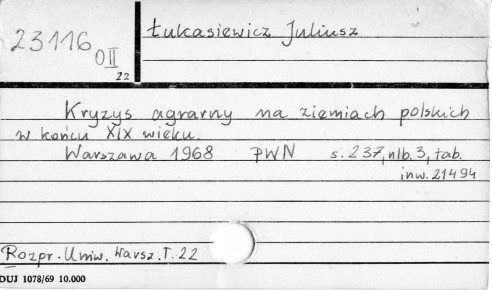 23116 OII
22
Łukasiewicz Juliusz
Kryzys agrarny na ziemiach polskich
w końcu XIX wieku.
Warszawa 1968 PWN s. 237, nlb. 3, tab.
inw. 21494
Rozpr. Uniw. Warsz. T. 22
DUJ 1078/69 10.000